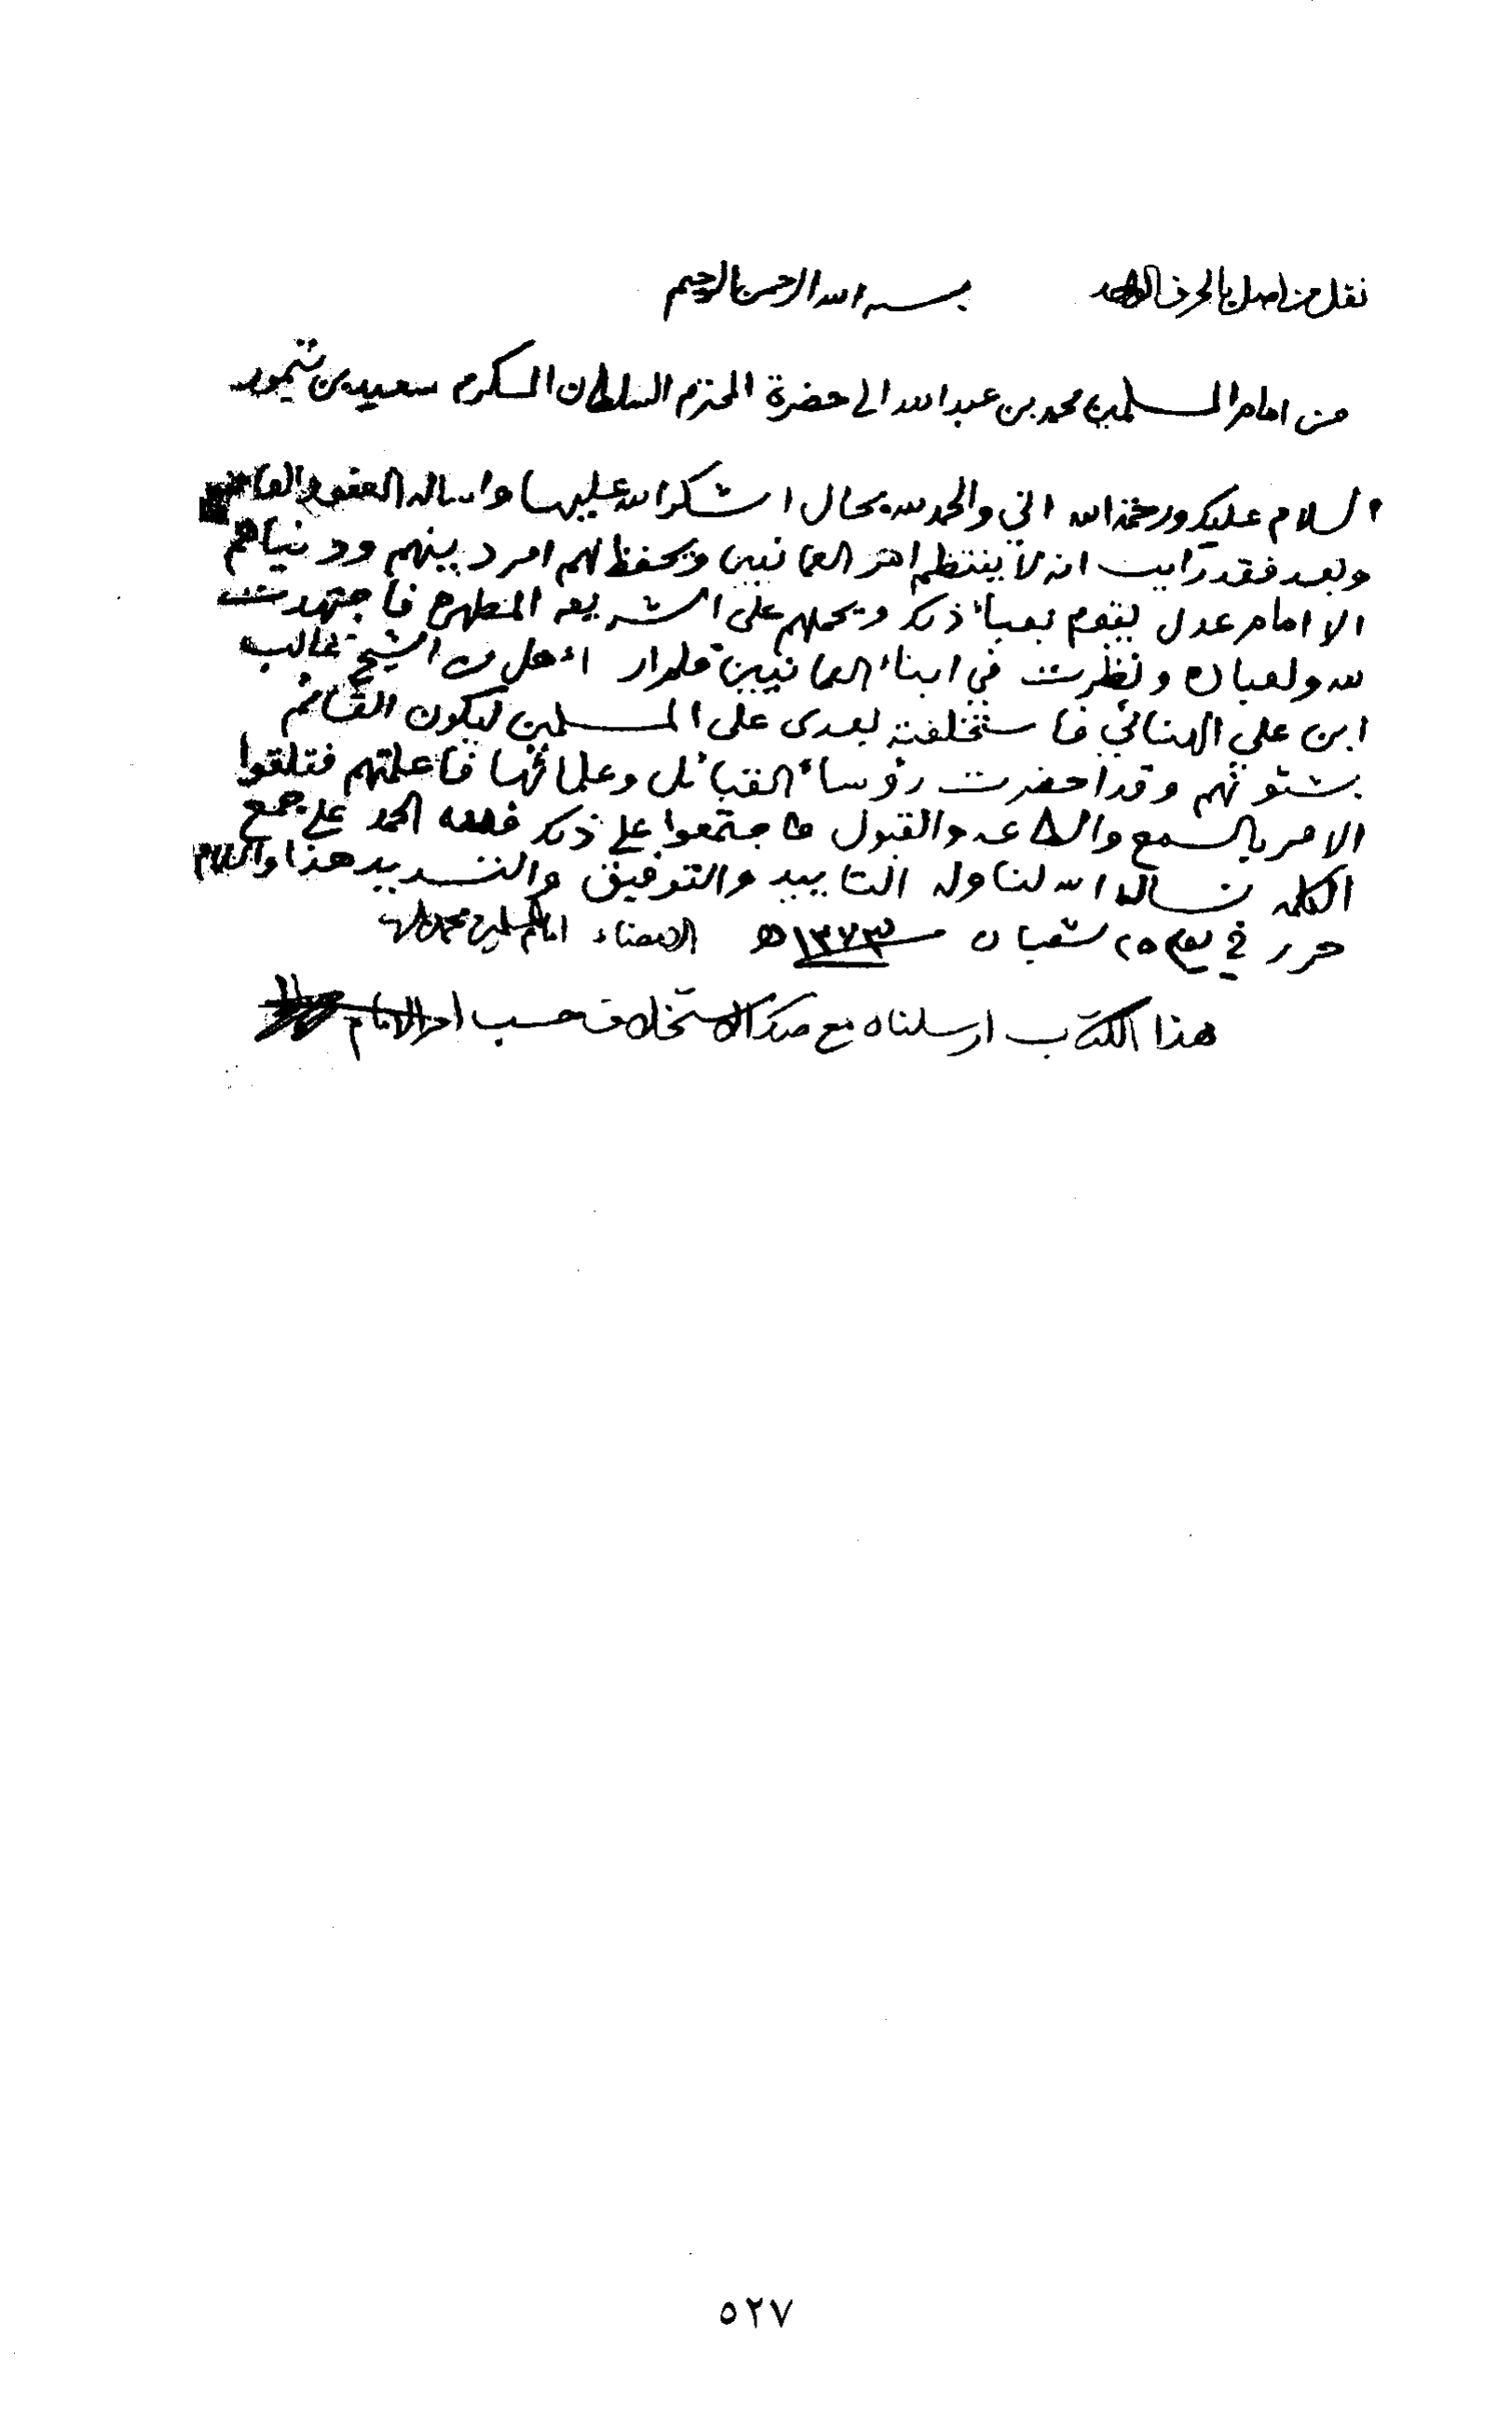 نقل من اصل بالحرف الواحد بسم الله الرحمن الرحيم
من امام المسلمين محمد بن عبدالله الى حضرة المحترم السلطان المكرم سعيد بن تيمور
السلام عليكم ورحمة الله اني والحمد لله بحال اشكر الله عليها واساله العفو والعافيه
وبعد فقد رايت انه لا ينتظم امر العمانيين ويحفظ لهم امر دينهم ودنياهم
الا امام عدل يقوم بعباء ذلك ويحملهم على الشريعه المطهره فاجتهدت
لله ولعباده ونظرت في ابناء العمانيين فلم ار اهل من الشيخ غالب
ابن علي الهنائي فاستخلفته بعدى على المسلمين ليكون القائم
بشئونهم وقد احضرت رؤساء القبائل وعلمائها فاعلمتهم فتلقوا
الامر بالسمع والطاعه والقبول فاجتمعوا على ذلك فلله الحمد على جمع
الكلمه نسال الله لنا وله التاييد والتوفيق والتسديد هذا والسلام
حرر في يوم ٢٥ شعبان سنة ١٣٧٣ه الامضاء امام المسلمين محمد
هذا الكتاب ارسلناه مع صك الاستخلاف حسب امر الامام
٥٢٧